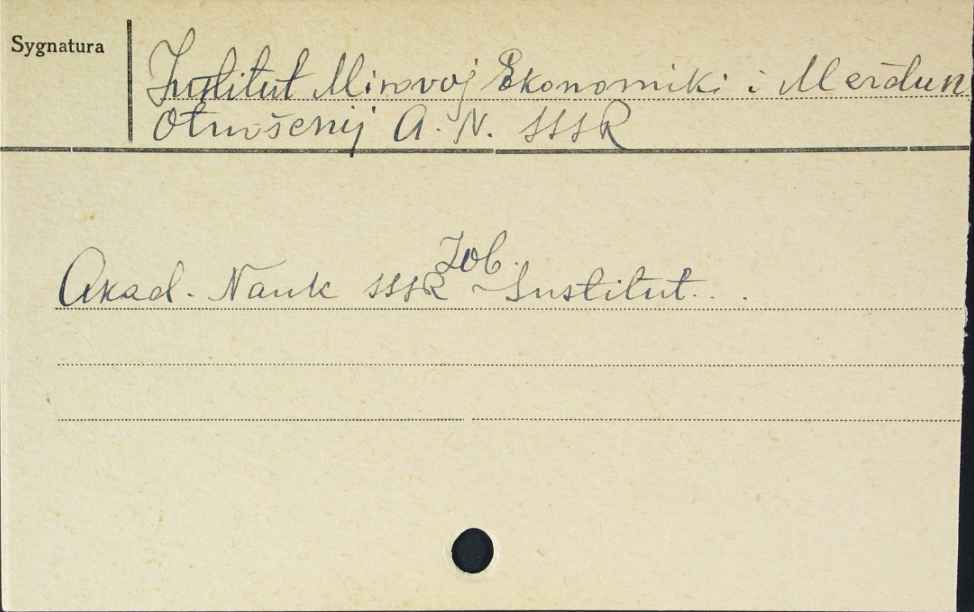 Sygnatura
Institut Mirovoj Ekonomiki i Meždun
Otnošenij A. N. SSSR
Zob.
Akad. Nauk SSSR Institut...